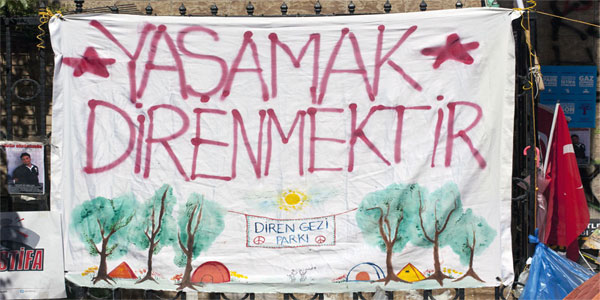 YAŞAMAK
DİRENMEKTİR
DİREN GEZİ
PARKI
NIFA